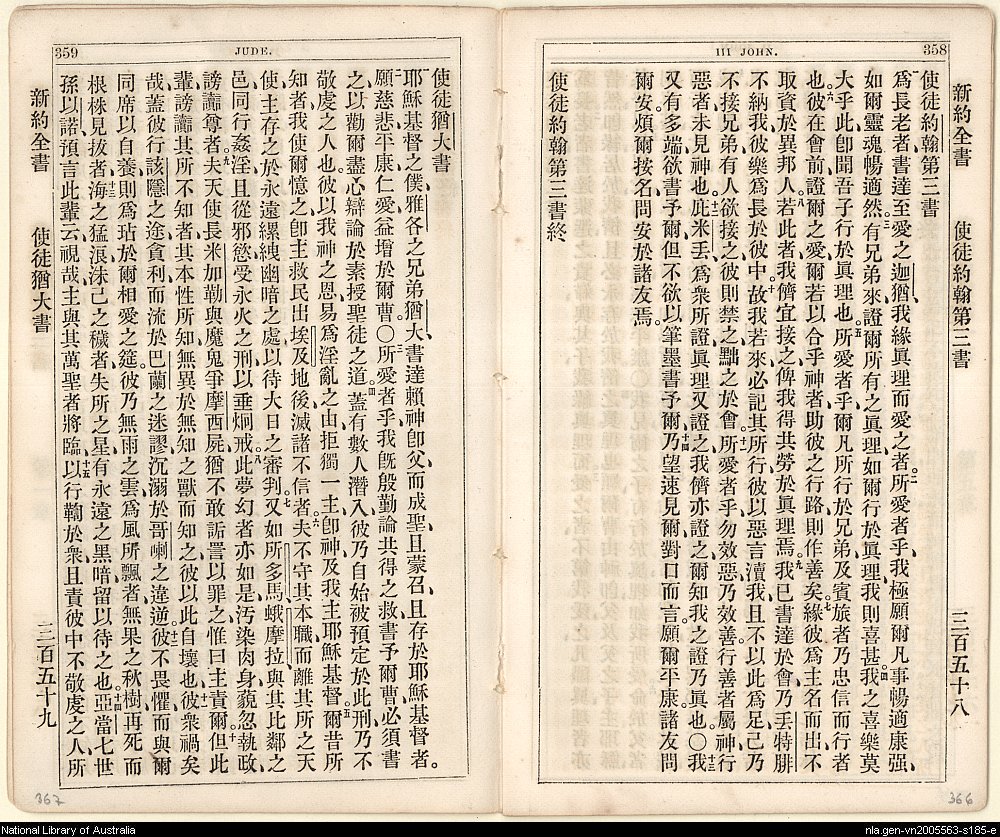 III JOHN.
358
新約全書 使徒約翰第三書 三百五十八
使徒約翰第三書
一爲長老者書達至愛之迦猶、我緣眞理而愛之者。二所愛者乎、我極願爾凡事暢適康强、
如爾靈魂暢適然。三有兄弟來證爾所有之眞理、如爾行於眞理、我則喜甚。四我之喜樂莫
大乎此、卽聞吾子行於眞理也。五所愛者乎、爾凡所行於兄弟及賓旅者、乃忠信而行者
也。六彼在會前證爾之愛、爾若以合乎神者助彼之行路、則作善矣。七緣彼爲主名而出、不
取資於異邦人。八若此者、我儕宜接之、俾我得共勞於眞理焉。九我已書達於會、乃丟特腓
不納我、彼樂爲長於彼中。十故我若來、必記其所行、彼以惡言瀆我、且不以此爲足、己乃
不接兄弟、有人欲接之、彼則禁之、黜之於會。十一所愛者乎、勿效惡、乃效善、行善者屬神、行
惡者未見神也。十二庇米丟爲衆所證、眞理又證之、我儕亦證之、爾知我之證乃眞也。〇十三我
又有多端欲書予爾、但不欲以筆墨書予爾。十四乃望速見爾、對口而言。願爾平康。諸友問
爾安、煩爾按名問安於諸友焉。
使徒約翰第三書終
359
JUDE.
使徒猶大書
一耶穌基督之僕、雅各之兄弟猶大、書達賴神卽父而成聖、且蒙召、且存於耶穌基督者。
二願慈悲平康仁愛益增於爾曹。〇三所愛者乎、我旣殷勤論共得之救書予爾曹、必須書
之以勸爾盡心辯論於素授聖徒之道。四蓋有數人潛入、彼乃自始被預定於此刑、乃不
敬虔之人也、彼以我神之恩易爲淫亂之由、拒獨一主卽神、及我主耶穌基督。五爾昔所
知者、我使爾憶之、卽主救民出埃及地、後滅諸不信者。六夫不守其本職、而離其所之天
使、主存之於永遠縲絏幽暗之處、以待大日之審判。七又如所多馬、蛾摩拉、與其比鄰之
邑、同行姦淫、且從邪慾、受永火之刑以垂炯戒。八此夢幻者亦如是、汚染肉身、藐忽執政、
謗讟尊者。九夫天使長米加勒與魔鬼爭摩西屍、猶不敢詬詈以罪之、惟曰、主責爾。十但此
輩謗讟其所不知者、其本性所知、無異於無知之獸而知之、彼以此自壞也。十一彼衆禍矣
哉、蓋彼行該隱之途、貪利而流於巴蘭之迷謬、沉溺於哥喇之違逆。十二彼不畏懼而與爾
同席以自養、則爲玷於爾相愛之筵、彼乃無雨之雲、爲風所飄者、無果之秋樹、再死而
根株見拔者、十三海之猛浪、沬己之穢者、失所之星、有永遠之黑暗留以待之也。十四亞當七世
孫以諾預言此輩云、視哉、主與其萬聖者將臨、十五以行鞫於衆、且責彼中不敬虔之人所
新約全書 使徒猶大書 三百五十九
367
366
National Library of Australia
nla.gen-vn2005563-s185-e